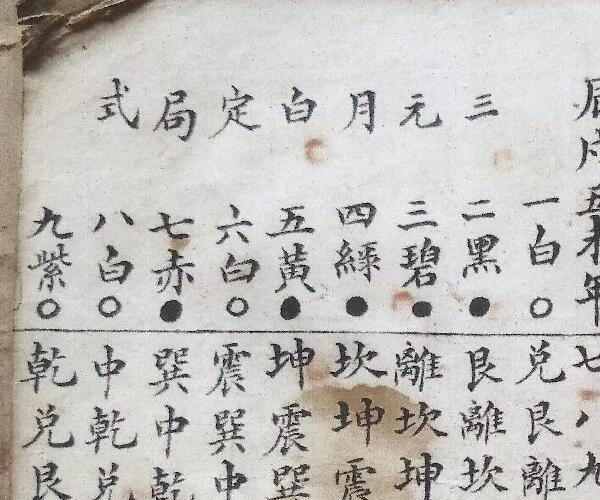 辰戌丑未年七八九
三元月白定局式
一白○兌艮離
二黑●艮離坎
三碧●離坎坤
四綠●坎坤震
五黃●坤震巽
六白○震巽中
七赤●巽中乾
八白○中乾兌
九紫○乾兌艮